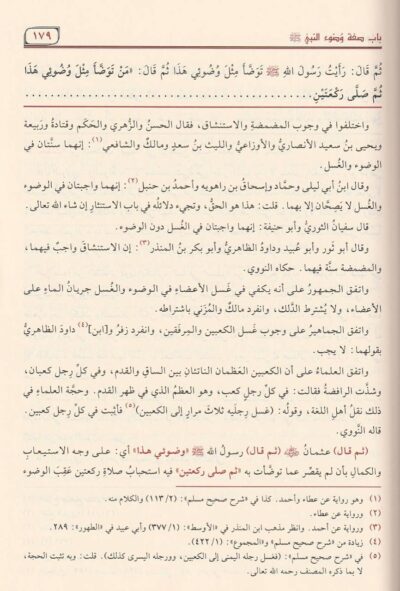 باب صفة وضوء النبي ﷺ
١٧٩
ثُمَّ قَالَ: رَأَيْتُ رَسُولَ اللهِ ﷺ تَوَضَّأَ مِثْلَ وُضُوئِي هَذَا ثُمَّ قَالَ: «مَنْ تَوَضَّأَ مِثْلَ وُضُوئِي هَذَا
ثُمَّ صَلَّى رَكْعَتَيْنِ
واختلفوا في وجوب المضمضة والاستنشاق، فقال الحسنُ والزُّهري والحَكَم وقتادةُ ورَبيعة
ويحيى بنُ سعيد الأنصاريُّ والأوزاعيُّ والليث بنُ سعدٍ ومالكٌ والشافعي(١): إنهما سنَّتان في
الوضوء والغُسل.
وقال ابنُ أبي ليلى وحمَّاد وإسحاقُ بن راهويه وأحمدُ بن حنبل(٢): إنهما واجبتان في الوضوء
والغُسل لا يَصِحَّان إلا بهما. قلت: هذا هو الحقُّ، وتجيء دلائلُه في باب الاستنثار إن شاء الله تعالى.
قال سفيانُ الثوريُّ وأبو حنيفة: إنهما واجبتان في الغُسل دون الوضوء.
وقال أبو ثور وأبو عُبيد وداودُ الظاهريُّ وأبو بكر بنُ المنذر(٣): إن الاستنشاق واجبٌ فيهما،
والمضمضة سنَّة فيهما. حكاه النووي.
واتفق الجمهورُ على أنه يكفي في غَسل الأعضاء في الوضوء والغُسل جريانُ الماءِ على
الأعضاء، ولا يُشترط الدَّلك، وانفرد مالكٌ والمُزَني باشتراطه.
واتفق الجماهيرُ على وجوب غَسل الكعبين والمِرفَقين، وانفرد زفرُ و[ابن](٤) داودَ الظاهريُّ
بقولهما: لا يجب.
واتفق العلماءُ على أن الكعبين العَظمان الناتئان بين الساقِ والقدم، وفي كلِّ رِجل كعبان،
وشذَّت الرافضةُ فقالت: في كلِّ رجلٍ كعب، وهو العظمُ الذي في ظهر القدم. وحجَّة العلماءِ في
ذلك نقلُ أهلِ اللغة، وقولُه: (غسل رِجلَيه ثلاثَ مرارٍ إلى الكعبين)(٥) فأثبت في كلِّ رِجل كعبين.
قاله النَّووي.
(ثم قال) عثمانُ ﷺ: (ثم قال) رسولُ الله ﷺ «وضوئي هذا» أي: على وجه الاستيعابِ
والكمالِ بأن لم يقصِّر عما توضَّأت به «ثم صلى ركعتين» فيه استحبابُ صلاةِ ركعتين عَقِبَ الوضوء
(١) وهو رواية عن عطاء وأحمد. كذا في «شرح صحيح مسلم»: (١١٣/٢) والكلام منه.
(٢) ورواية عن عطاء.
(٣) ورواية عن أحمد. وانظر مذهب ابن المنذر في «الأوسط»: (٣٧٧/١) وأبي عبيد في «الطهور»: ٢٨٩.
(٤) زيادة من «شرح صحيح مسلم» و«المجموع»: (٤٢٢/١).
(٥) في «شرح صحيح مسلم»: (فغسل رجله اليمنى إلى الكعبين، ورجله اليسرى كذلك). قلت: وبه تثبت الحجة،
لا بما ذكره المصنف رحمه الله تعالى.